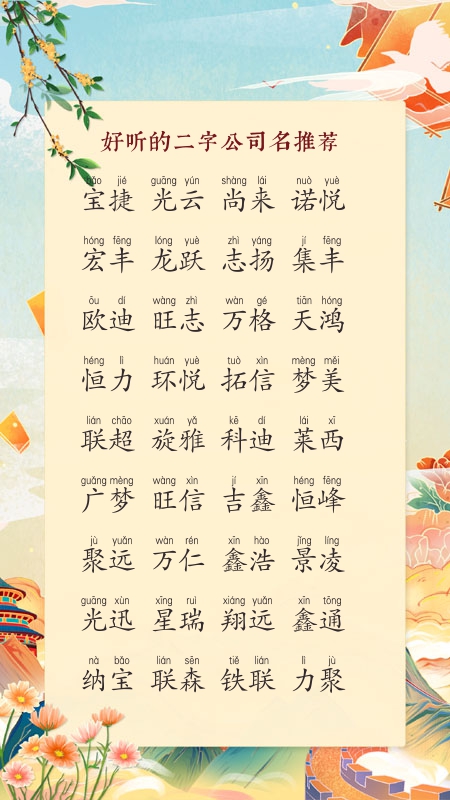 好听的二字公司名推荐
bǎo jié guāng yún shàng lái nuò yuè
宝捷 光云 尚来 诺悦
hóng fēng lóng yuè zhì yáng jí fēng
宏丰 龙跃 志扬 集丰
ōu dí wàng zhì wàn gé tiān hóng
欧迪 旺志 万格 天鸿
héng lì huán yuè tuò xìn mèng měi
恒力 环悦 拓信 梦美
lián chāo xuán yǎ kē dí lái xī
联超 旋雅 科迪 莱西
guǎng mèng wàng xìn jí xīn héng fēng
广梦 旺信 吉鑫 恒峰
jù yuǎn wàn rén xīn hào jǐng líng
聚远 万仁 鑫浩 景凌
guāng xùn xīng ruì xiáng yuǎn xīn tōng
光迅 星瑞 翔远 鑫通
nà bǎo lián sēn tiě lián lì jù
纳宝 联森 铁联 力聚